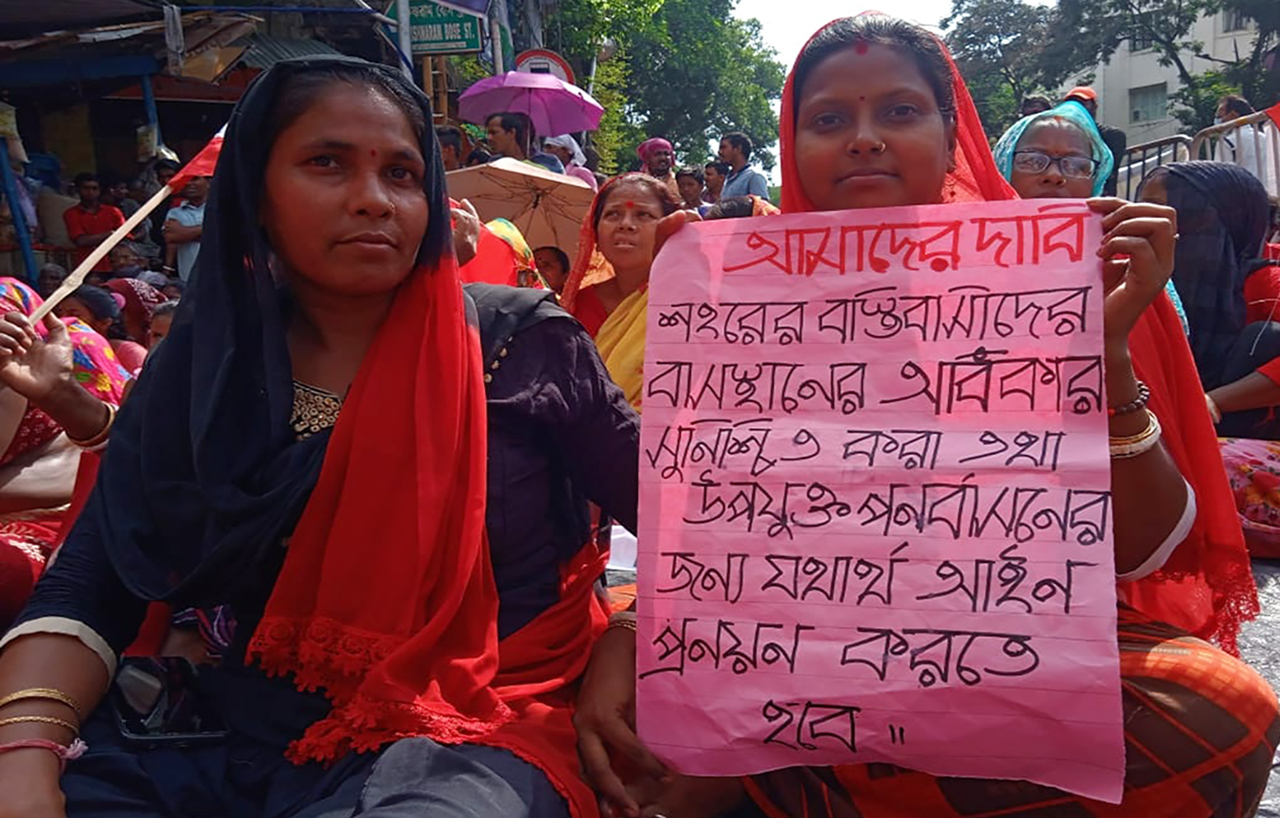 SHNARAM BOSE ST.
আমাদের দাবি
শহরের বস্তিবাসীদের
বাসস্থানের অধিকার
সুনিশ্চিত করা তথা
উপযুক্ত পনর্বাসনের
জন্য যথার্থ আইন
প্রনয়ন করতে
হবে ॥